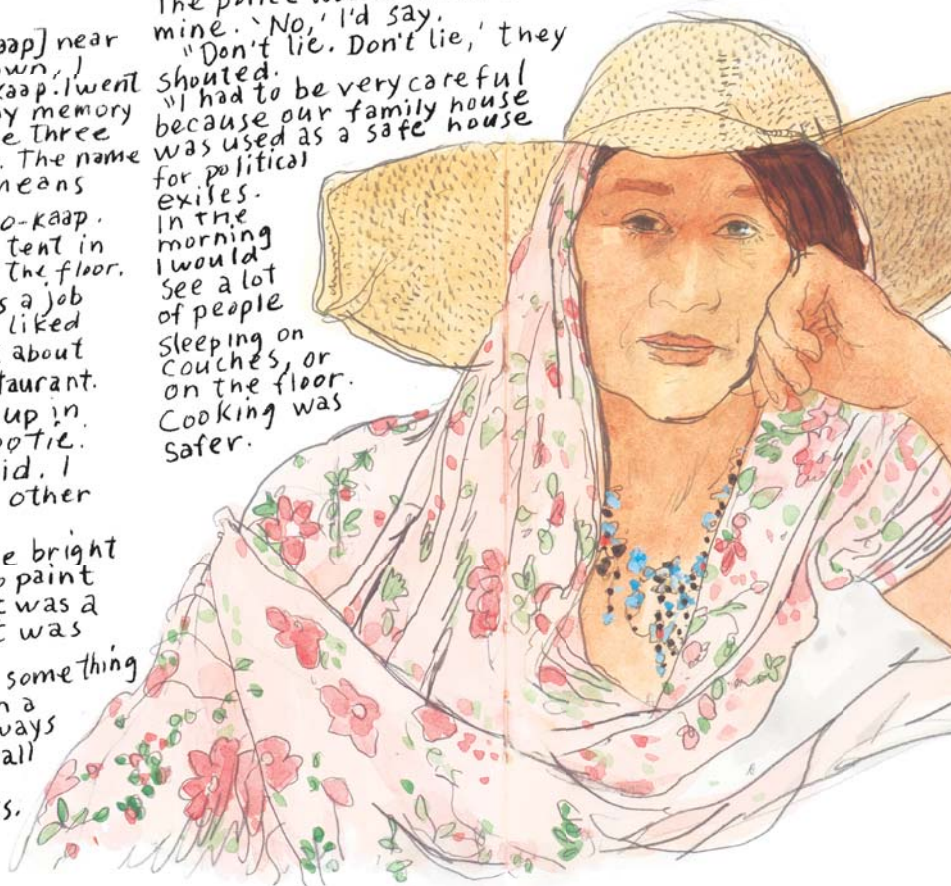 aap] near
own, I
kaap. I went
y memory
e three
. The name
means
o-kaap.
tent in
the floor.
s a job
liked
about
taurant.
up in
ootie.
id. I
other
e bright
paint
t was a
t was
something
n a
ways
all
s.
The police
mine. 'No,' I'd say.
"Don't lie. Don't lie,' they
shouted.
"I had to be very careful
because our family house
was used as a safe house
for political
exiles.
In the
morning
I would
see a lot
of people
sleeping on
couches, or
on the floor.
Cooking was
safer.